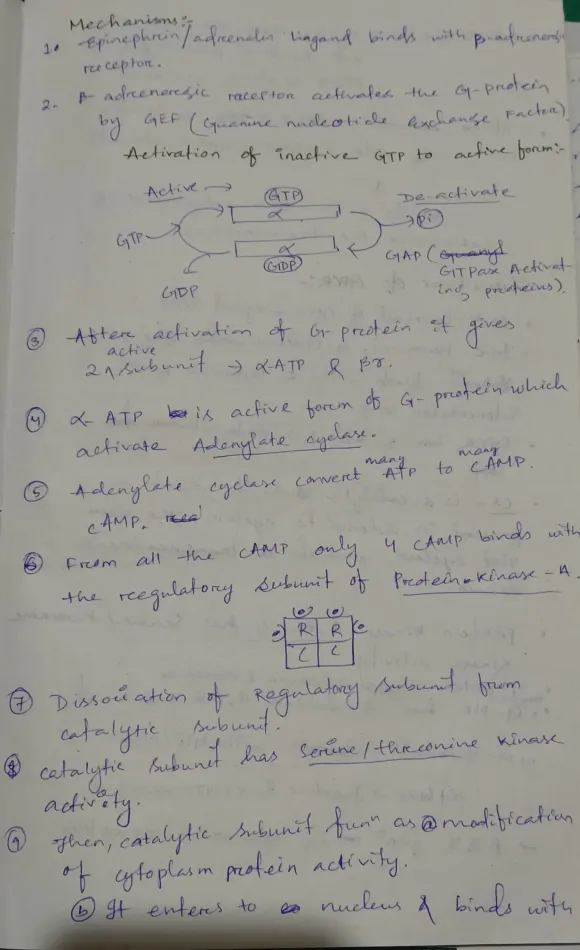 Mechanisms:-
1. Epinephrein/adrenalin ligand binds with β-adrenergic
receptor.
2. β-adreeneregic raceptor activates the G-protein
by GEF (Guanine nucleotide Exchange Factor).
Activation of inactive GTP to active foram:-
Active →
GTP
α
De-activate
Pi
GTP
α
GDP
GAP (
GTPase Activat-
ing proteins).
GDP
③ After activation of G-protein it gives
active
2 ^ subunit → α-ATP & βγ.
④ α-ATP is active form of G-protein which
activate Adenylate cyclase.
many many
⑤ Adenylate cyclase convert ATP to cAMP.
cAMP.
⑥ From all the cAMP only 4 cAMP binds with
the reegulatory subunit of Protein-kinase-A.
R R
C C
⑦ Dissociation of Regulatory subunit from
catalytic subunit.
⑧ catalytic subunit has Serine/threonine kinase
activity.
⑨ Then, catalytic subunit funⁿ as ⓐ modification
of cytoplasm protein activity.
ⓑ It enteres to nucleus & binds with